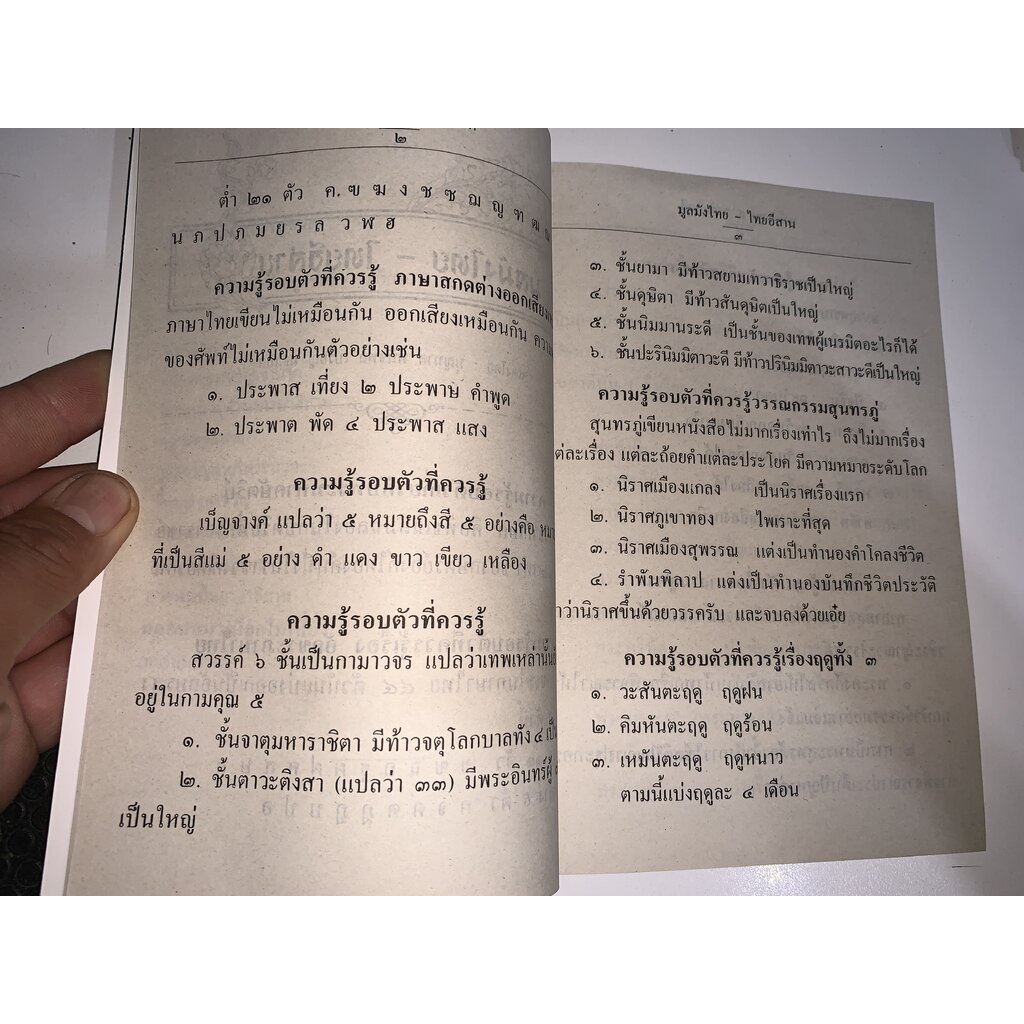 ๒
ต่ำ ๒๑ ตัว ค. ฃ ฆ ง ช ซ ฌ ญ ฑ ฒ
น ภ ป ภ ม ย ร ล ว ฬ ฮ
ความรู้รอบตัวที่ควรรู้ ภาษาสกดต่างออกเสียง
ภาษาไทยเขียนไม่เหมือนกัน ออกเสียงเหมือนกัน
ของศัพท์ไม่เหมือนกันตัวอย่างเช่น
๑. ประพาส เที่ยง ๒ ประพาษ คำพูด
๒. ประพาต พัด ๔ ประพาส แสง
ความรู้รอบตัวที่ควรรู้
เบ็ญจางค์ แปลว่า ๕ หมายถึงสี ๕ อย่างคือ
ที่เป็นสีแม่ ๕ อย่าง ดำ แดง ขาว เขียว เหลือง
ความรู้รอบตัวที่ควรรู้
สวรรค์ ๖ ชั้นเป็นกามาวจร แปลว่าเทพเหล่านั้น
อยู่ในกามคุณ ๕
๑. ชั้นจาตุมหาราชิตา มีท้าวจตุโลกบาลทั้ง ๔
๒. ชั้นตาวะติงสา (แปลว่า ๓๓) มีพระอินทร์ผู้
เป็นใหญ่
มูลมังไทย - ไทยอีสาน
๓
๓. ชั้นยามา มีท้าวสยามเทวาธิราชเป็นใหญ่
๔. ชั้นดุษิตา มีท้าวสันดุษิตเป็นใหญ่
๕. ชั้นนิมมานระดี เป็นชั้นของเทพผู้เนรมิตอะไรก็ได้
๖. ชั้นปะรินิมมิตาวะดี มีท้าวปรินิมมิตาวะสาวะดีเป็นใหญ่
ความรู้รอบตัวที่ควรรู้วรรณกรรมสุนทรภู่
สุนทรภู่เขียนหนังสือไม่มากเรื่องเท่าไร ถึงไม่มากเรื่อง
แต่ละเรื่อง แต่ละถ้อยคำแต่ละประโยค มีความหมายระดับโลก
๑. นิราศเมืองแกลง เป็นนิราศเรื่องแรก
๒. นิราศภูเขาทอง ไพเราะที่สุด
๓. นิราศเมืองสุพรรณ แต่งเป็นทำนองคำโคลงชีวิต
๔. รำพันพิลาป แต่งเป็นทำนองบันทึกชีวิตประวัติ
ว่านิราศขึ้นด้วยวรรครับ และจบลงด้วยเอ๋ย
ความรู้รอบตัวที่ควรรู้เรื่องฤดูทั้ง ๓
๑. วะสันตะฤดู ฤดูฝน
๒. คิมหันตะฤดู ฤดูร้อน
๓. เหมันตะฤดู ฤดูหนาว
ตามนี้แบ่งฤดูละ ๔ เดือน